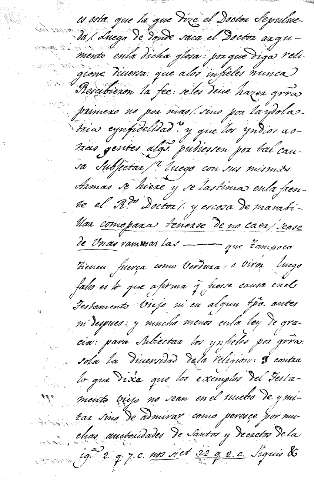 es esta que lo que dize el Doctor Sepulve
da / Luego de donde saca el Doctor argu
mento en la dicha glosa: porque diga reli
gione diversa: que a los infieles nunca
Rescibieron la fee: se les deve hazer guerra
primero no por mas / sino por la ydola
tria e ynfidelidad: y que los yndios a o
tras gentes pudiessen por tal cau
sa Subjectar / Luego con sus mismas
Armas se hiere y se lastima en la fren
te el Doctor / y es cosa de maravi
llar como para tenerse de no caer / se ase
de Unas ramas que tampoco
tienen fuerça como verdura: o Luego
falso es lo que afirma que fuese causa en el
Testamento Viejo ni en algun tpo antes
ni despues: y mucho menos en la ley de gra
cia: para Subiectar los ynfieles por guerra
sola la diversidad de la religion: & contra
lo que dixo que los exemplos del Testa
mento Viejo no sean en el nuebo de y mi
tar sino de admirar como paresce por mu
chas auctoridades de Santos y decretos de la
igª 2. q. 7. c. nos si et 22 q. 2. c. Siquis &